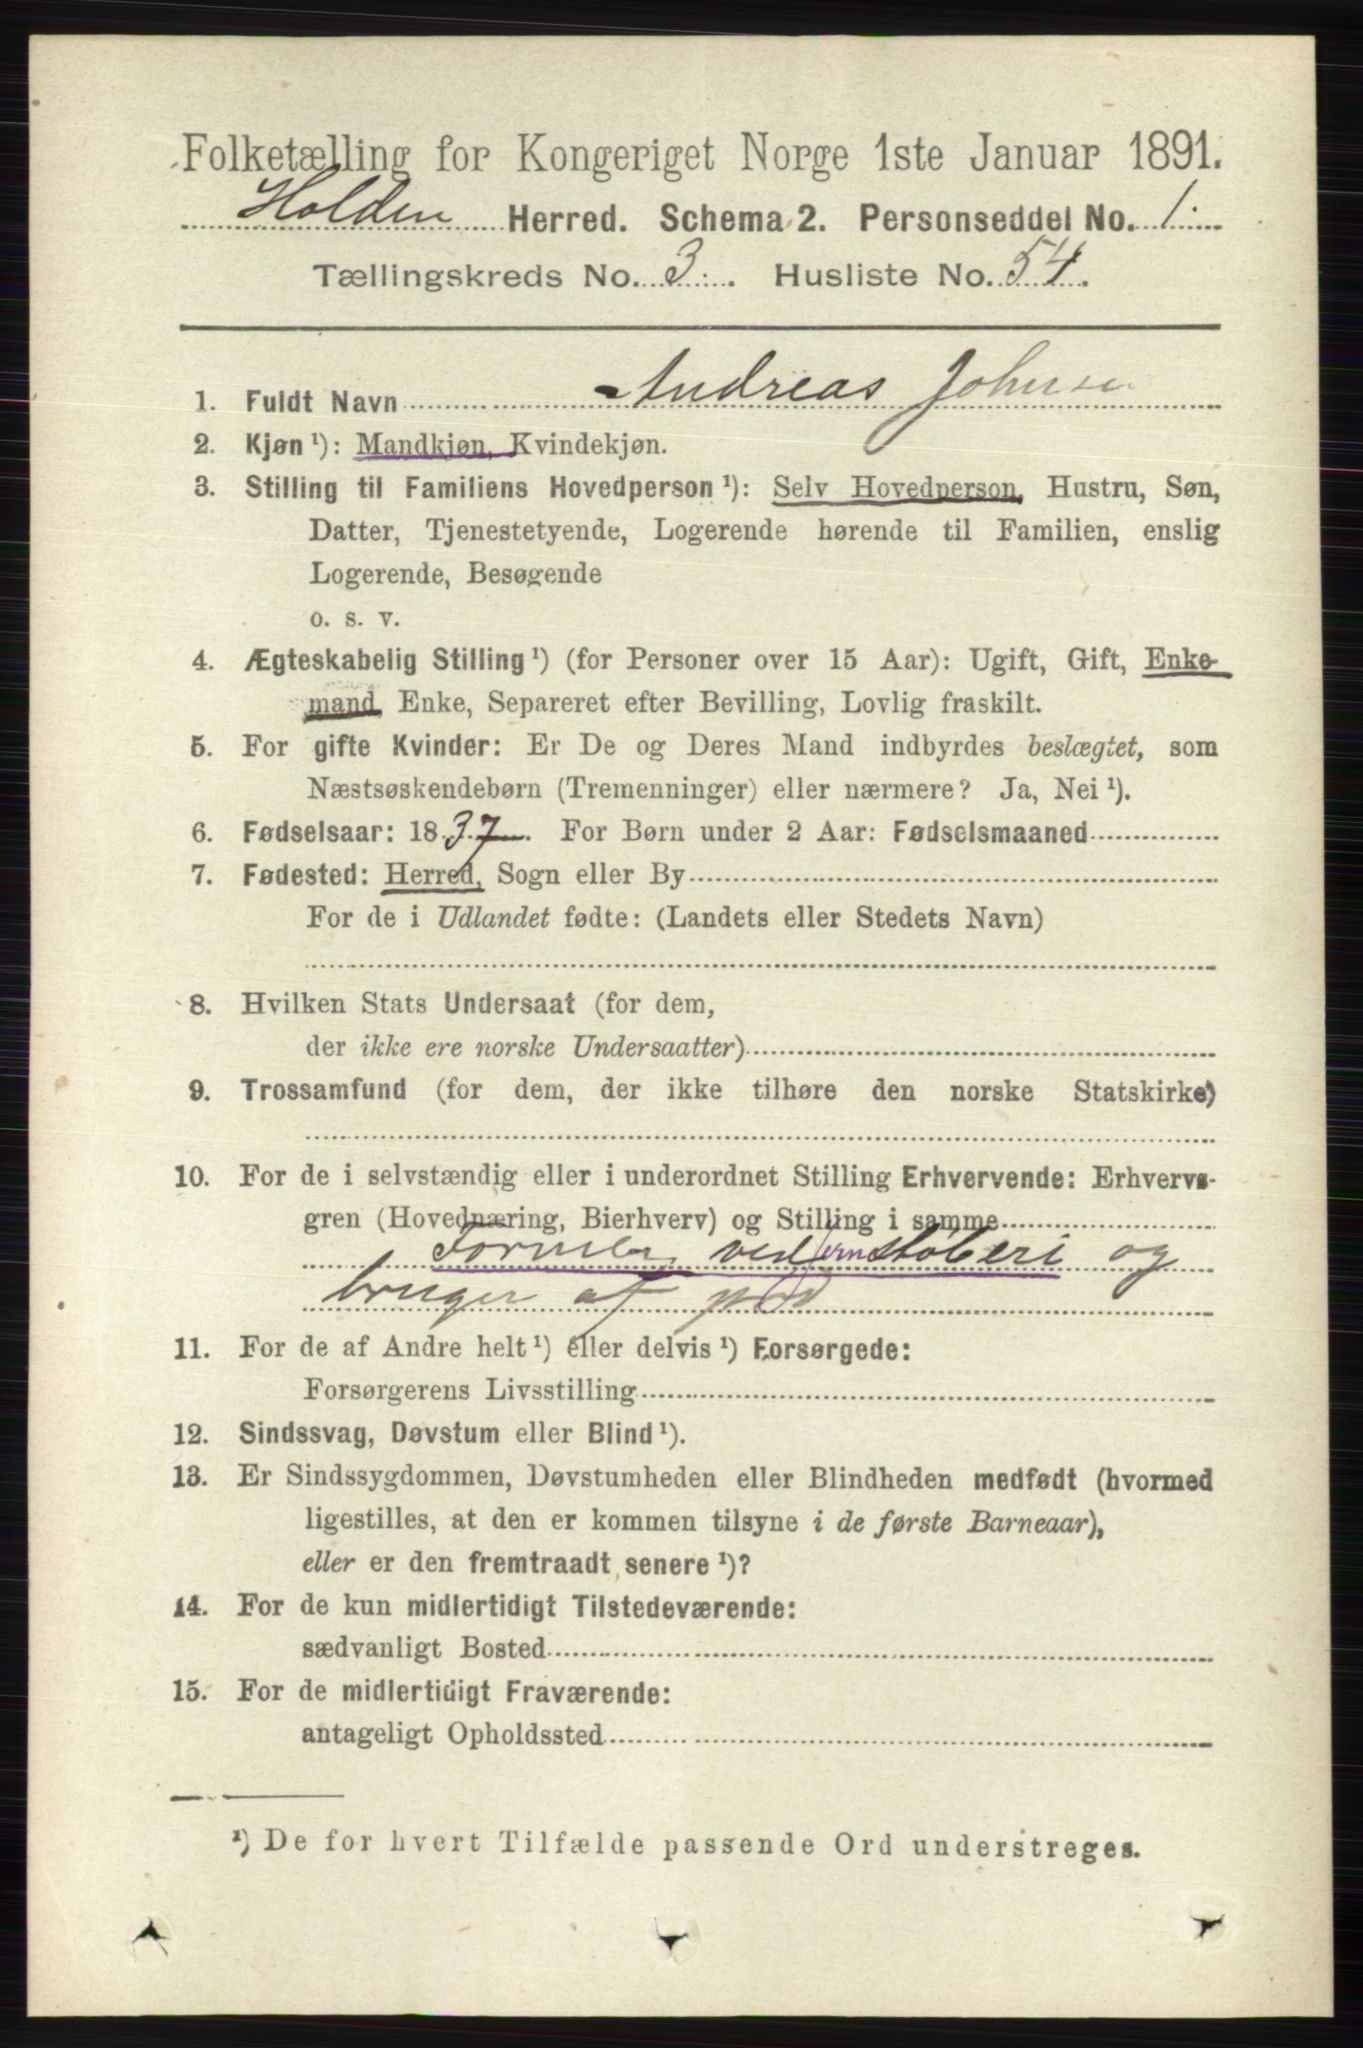 Folketælling for Kongeriget Norge 1ste Januar 1891.
Holden Herred. Schema 2. Personseddel No. 1.
Tællingskreds No. 3. Husliste No. 54.
1. Fuldt Navn Andreas Johnsen
2. Kjøn ¹): Mandkjøn, Kvindekjøn.
3. Stilling til Familiens Hovedperson ¹): Selv Hovedperson, Hustru, Søn,
Datter, Tjenestetyende, Logerende hørende til Familien, enslig
Logerende, Besøgende
o. s. v.
4. Ægteskabelig Stilling ¹) (for Personer over 15 Aar): Ugift, Gift, Enke-
mand, Enke, Separeret efter Bevilling, Lovlig fraskilt.
5. For gifte Kvinder: Er De og Deres Mand indbyrdes beslægtet, som
Næstsøskendebørn (Tremenninger) eller nærmere? Ja, Nei ¹).
6. Fødselsaar: 1837. For Børn under 2 Aar: Fødselsmaaned
7. Fødested: Herred, Sogn eller By
For de i Udlandet fødte: (Landets eller Stedets Navn)
8. Hvilken Stats Undersaat (for dem,
der ikke ere norske Undersaatter)
9. Trossamfund (for dem, der ikke tilhøre den norske Statskirke)
10. For de i selvstændig eller i underordnet Stilling Erhvervende: Erhvervs-
gren (Hovednæring, Bierhverv) og Stilling i samme
ved Jernstøberi og
bruger af
11. For de af Andre helt ¹) eller delvis ¹) Forsørgede:
Forsørgerens Livsstilling
12. Sindssvag, Døvstum eller Blind ¹).
13. Er Sindssygdommen, Døvstumheden eller Blindheden medfødt (hvormed
ligestilles, at den er kommen tilsyne i de første Barneaar),
eller er den fremtraadt senere ¹)?
14. For de kun midlertidigt Tilstedeværende:
sædvanligt Bosted
15. For de midlertidigt Fraværende:
antageligt Opholdssted
¹) De for hvert Tilfælde passende Ord understreges.